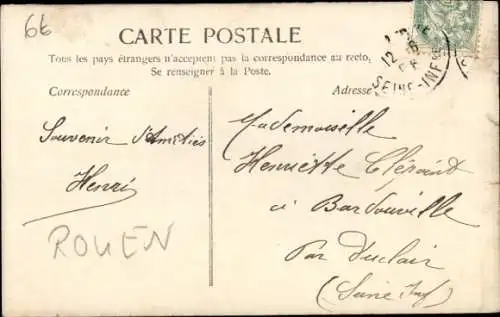 6t
CARTE POSTALE
Tous les pays étrangers n'acceptent pas la correspondance au recto,
Se renseigner à la Poste.
Correspondance
Adresse
12
SEINE-INF
Souvenir d'Amitiés
Henri
ROUEN
Mademoiselle
Henriette
à Bardouville
Par Duclair
(Seine Inf)